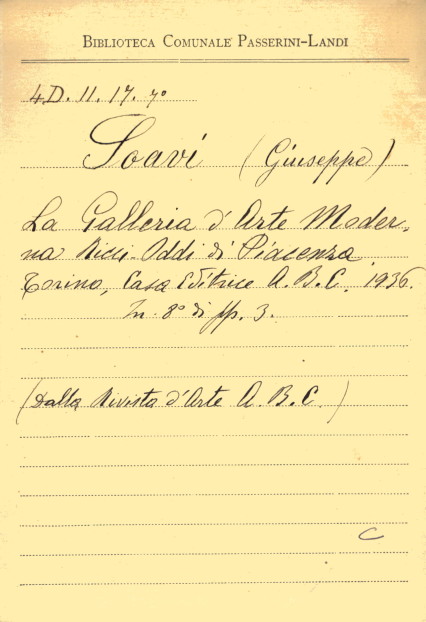 BIBLIOTECA COMUNALE PASSERINI-LANDI
4D. 11. 17. 7º
Soavi (Giuseppe)
La Galleria d'Arte Moder-
na Ricci-Oddi di Piacenza.
Torino, Casa Editrice A. B. C. 1936.
In 8º di pp. 3.
(Dalla Rivista d'Arte A. B. C.)
C